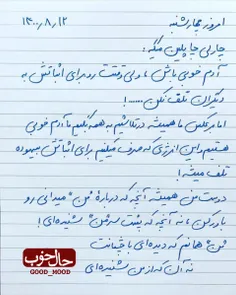 امروز چهارشنبه ۱۴۰۰،۸،۱۲
چارلی چاپلین میگه:
آدم خوبی باش، ولی وقتت رو برای اثباتش به
دیگران تلف نکن......!
اما برعکس ما همیشه در تلاشیم به همه بگیم ما آدم خوبی
هستیم و این انرژی که صرف میکنیم برای اثباتش بیهوده
تلف میشه!
دوست من همیشه آنچه که درباره "من" میدانی رو
باور کن، نه آنچه که پشت سر "من" شنیده‌ای!
"من" همانم که دیده‌ای با
نه آن که از من شنیده‌ای
حال خوب
GOOD_MOOD